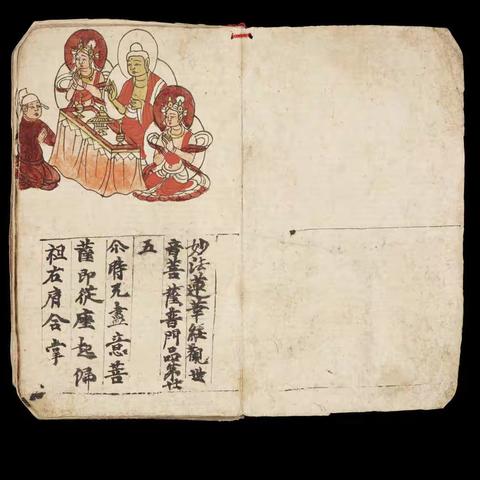 妙法蓮華經觀世
音菩薩普門品第廿
五
尒時无盡意菩
薩即從座起偏
袒右肩合掌